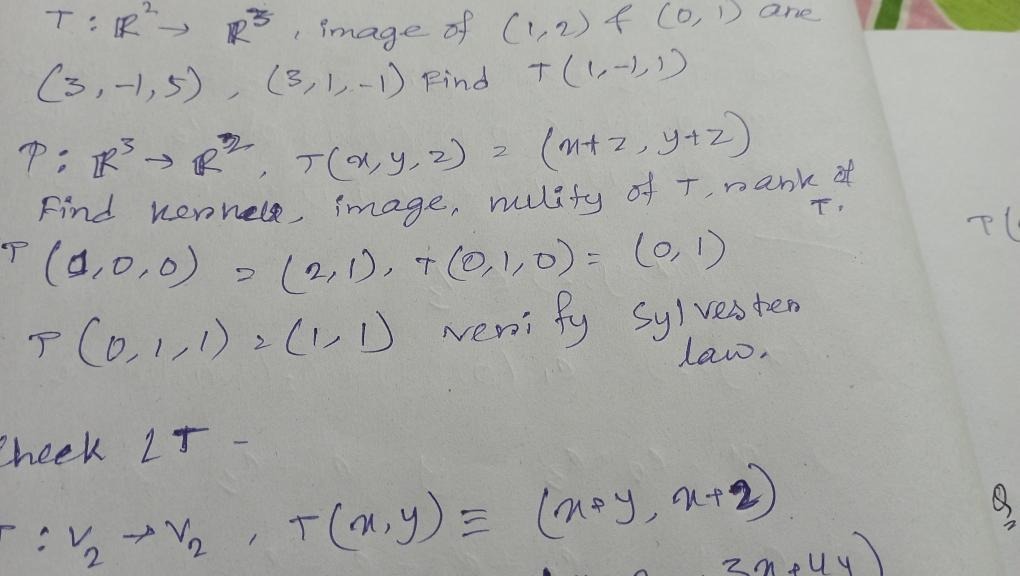 T : ℝ² → ℝ³, image of (1,2) & (0,1) are
(3,-1,5), (3,1,-1) Find T(1,-1,1)
T: ℝ³ → ℝ², T(x,y,z) = (x+z, y+z)
Find kernel, image, nulity of T, rank of T.
T(1,0,0) = (2,1), T(0,1,0) = (0,1)
T(0,1,1) = (1,1) verify Sylvester
law.
Check LT -
T : V₂ → V₂, T(x,y) ≡ (x+y, x+2)
3x+4y)
T(
Q